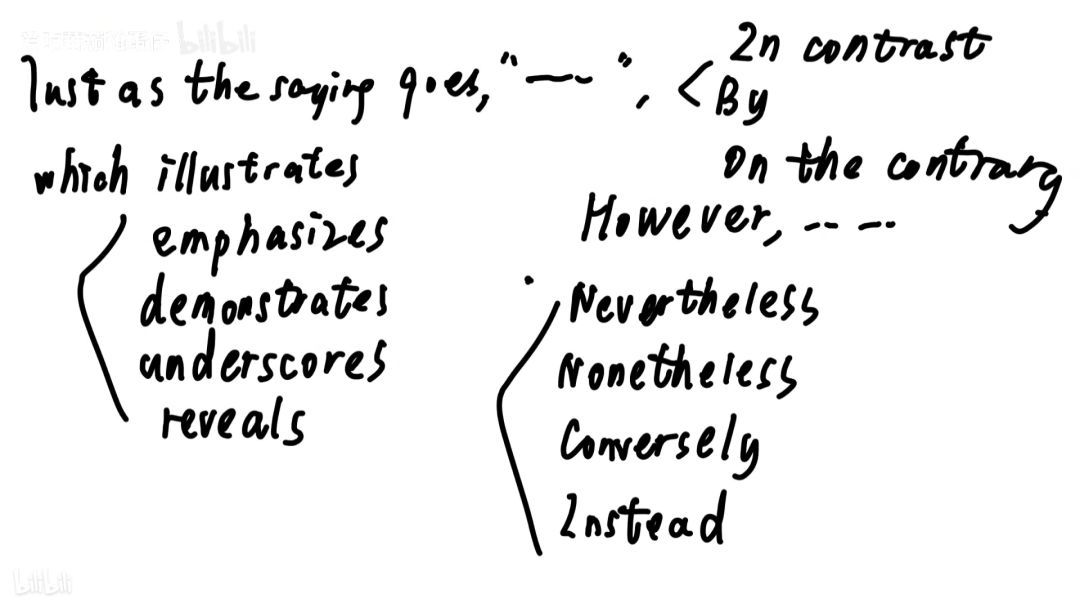 bilibili
Just as the saying goes, "—-", < In contrast
By
which illustrates
emphasizes
demonstrates
underscores
reveals
On the contrary
However, -- --
Nevertheless
Nonetheless
Conversely
Instead
bilibili